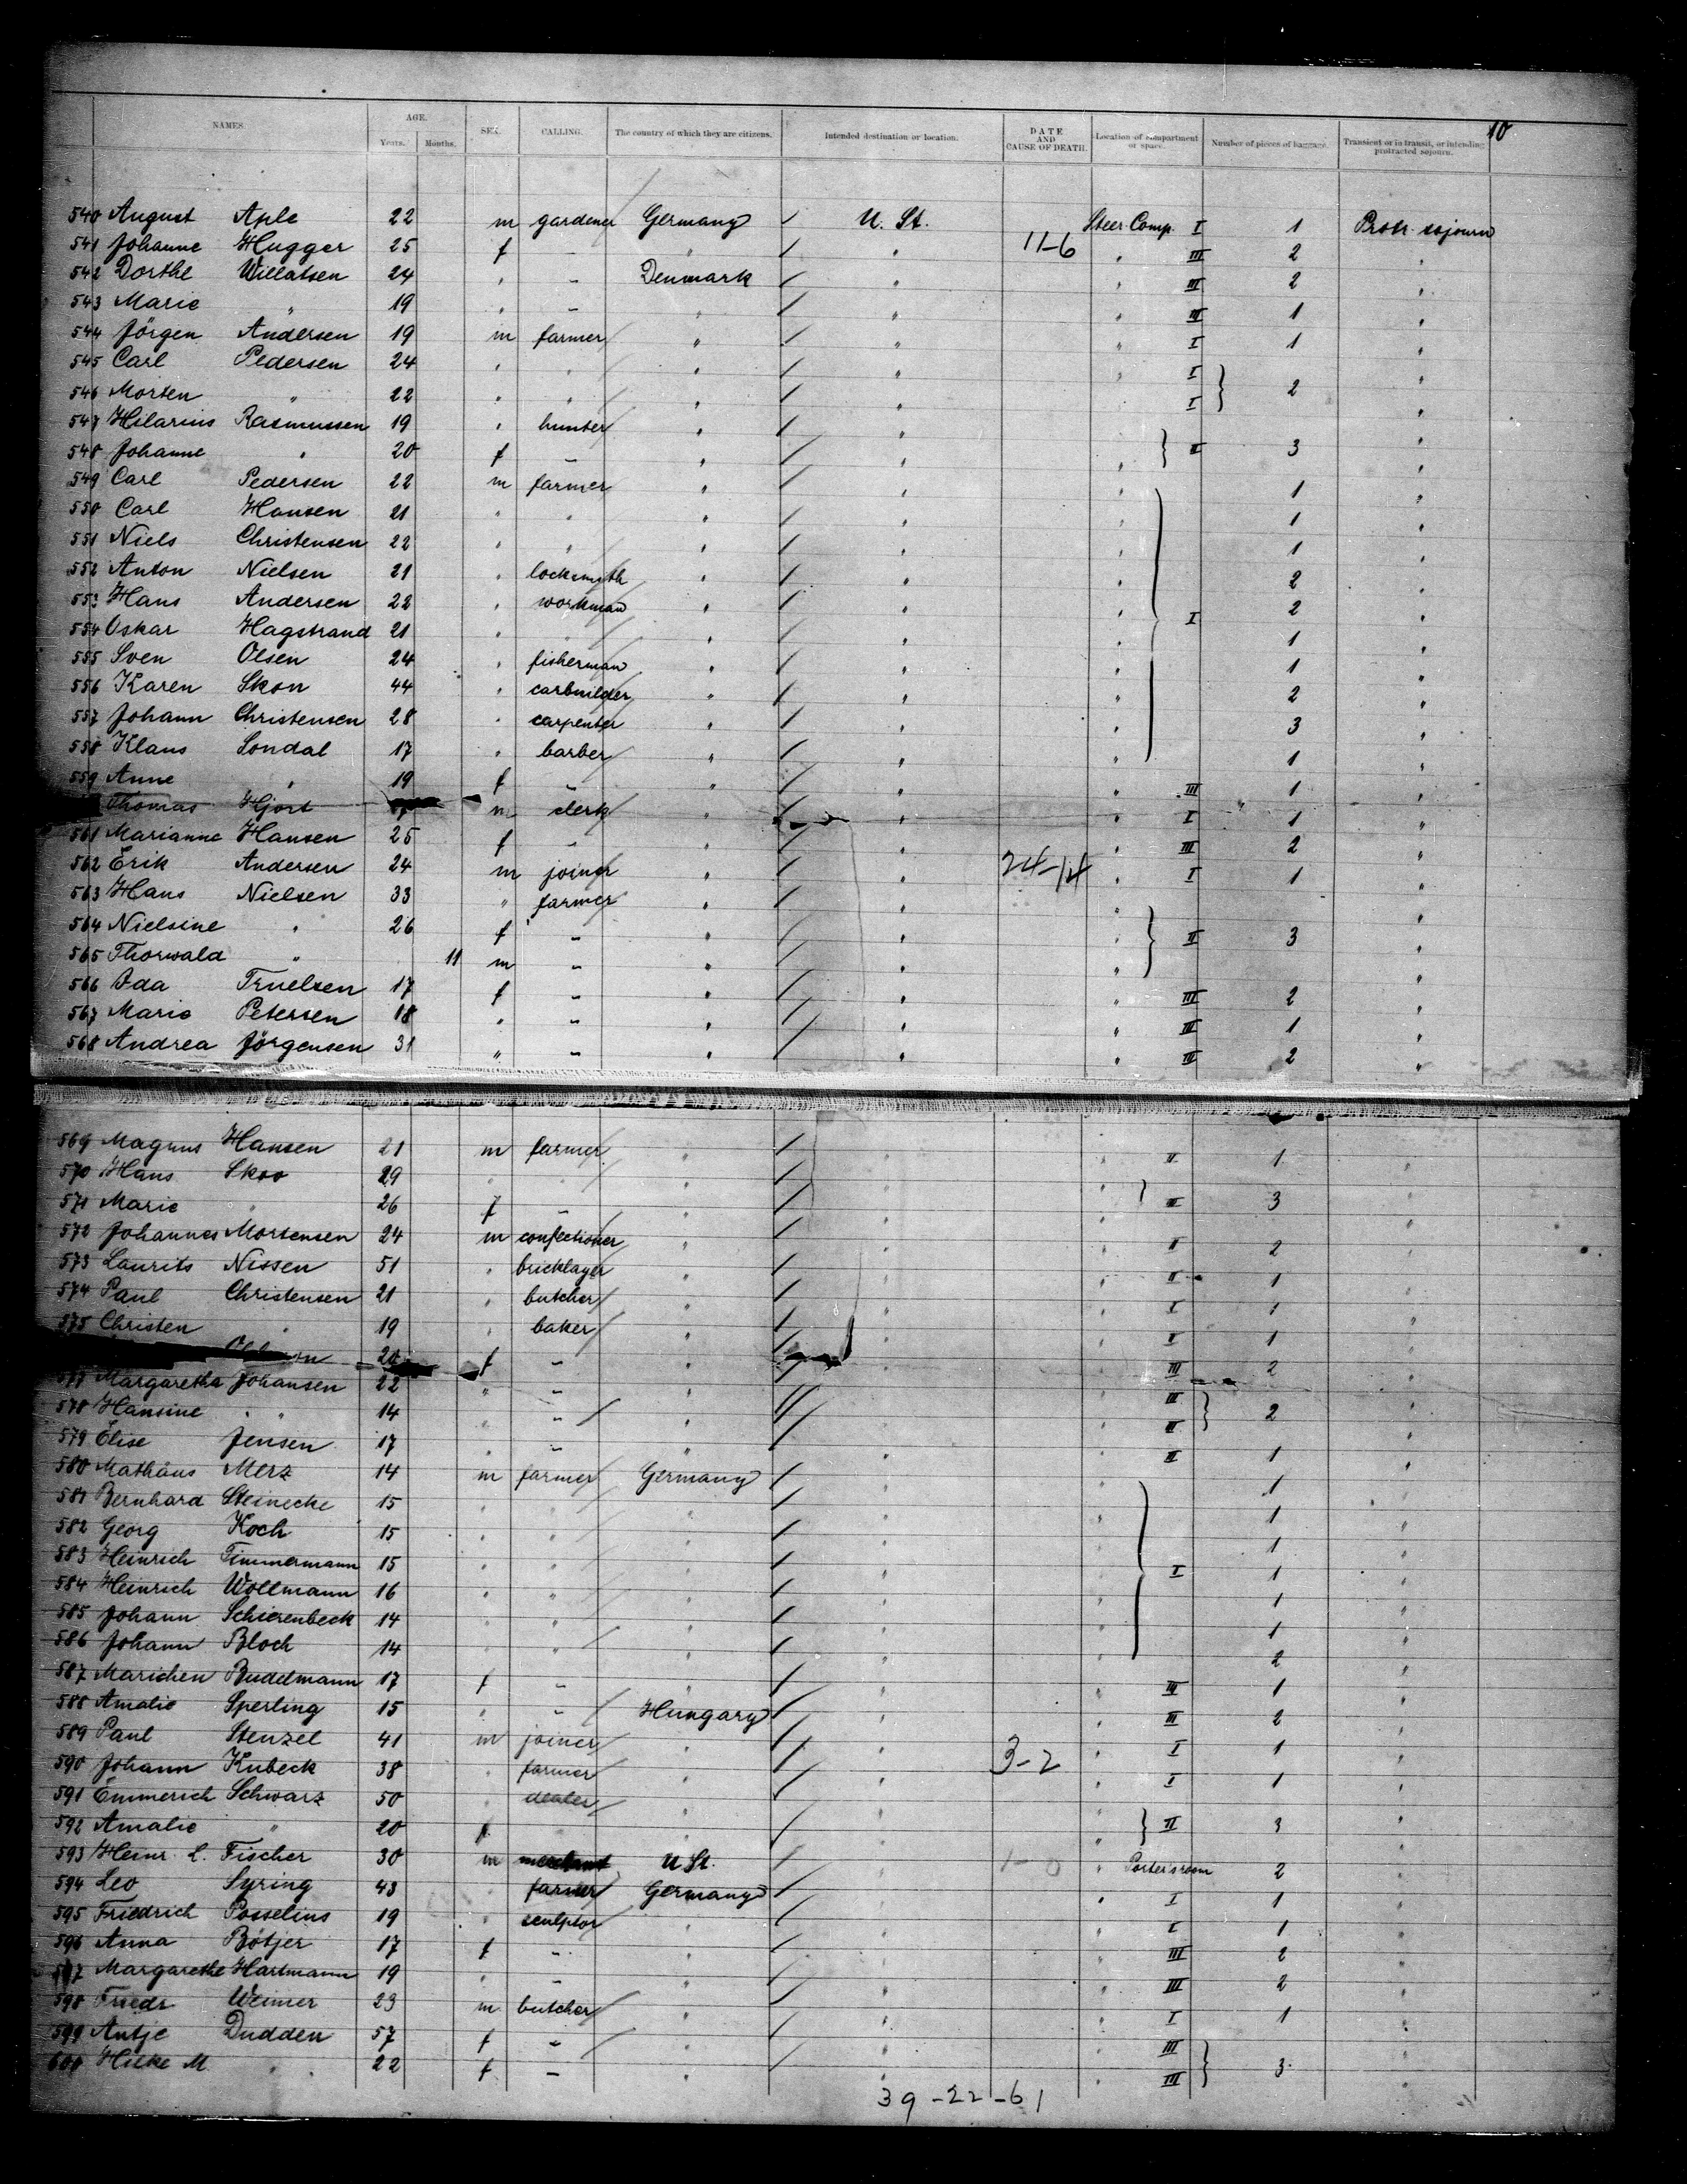 10
NAMES. AGE. SEX. CALLING. The country of which they are citizens. Intended destination or location. DATE AND CAUSE OF DEATH. Location of compartment or space. Number of pieces of baggage. Transient or in transit, or intending protracted sojourn.
Years. Months.
540 August Aple 22 m gardener Germany / U. St. Steer. Comp. I 1 Protr. sojourn
541 Johanne Hugger 25 f - " / " 11-6 " III 2 "
542 Dorthe Willatsen 24 " - Denmark / " " III 2 "
543 Marie " 19 " - " / " " III 1 "
544 Jörgen Andersen 19 m farmer " / " " I 1 "
545 Carl Pedersen 24 " " " / " " I } 2 "
546 Morten " 22 " " " / " " I "
547 Hilarius Rasmussen 19 " hunter " / " } II 3 "
548 Johanne " 20 f - " / " " "
549 Carl Pedersen 22 m farmer " / " " 1 "
550 Carl Hansen 21 " " " / " " 1 "
551 Niels Christensen 22 " " " / " " 1 "
552 Anton Nielsen 21 " locksmith " / " " 2 "
553 Hans Andersen 22 " workman " / " " I 2 "
554 Oskar Hagstrand 21 " " " / " " 1 "
555 Sven Olsen 24 " fisherman " / " " 1 "
556 Karen Skon 44 " carbuilder " / " " 2 "
557 Johann Christensen 28 " carpenter " / " " 3 "
558 Klaus Sondal 17 " barber " / " " 1 "
559 Anne " 19 f - " / " " III 1 "
Thomas Hjort m clerk " / " " I 1 "
561 Marianne Hansen 25 f - " / " " III 2 "
562 Erik Andersen 24 m joiner " / " 24-14 " I 1 "
563 Hans Nielsen 33 " farmer " / " " "
564 Nielsine " 26 f - " / " " } II 3 "
565 Thorwald " 11 m - " / " " "
566 Ida Truelsen 17 f - " / " " III 2 "
567 Marie Petersen 18 " - " / " " III 1 "
568 Andrea Jörgensen 31 " - " / " " III 2 "
569 Magnus Hansen 21 m farmer " / " " II 1 "
570 Hans Skov 29 " " " / " " "
571 Marie " 26 f - " / " " } III 3 "
572 Johannes Mortensen 24 m confectioner " / " " II 2 "
573 Laurits Nissen 51 " bricklayer " / " " II 1 "
574 Paul Christensen 21 " butcher " / " " I 1 "
575 Christen " 19 " baker " / " " II 1 "
20 f - " / " " III 2 "
577 Margaretha Johansen 22 " - " / " III } 2 "
578 Hansine " 14 " - " / " III "
579 Elise Jensen 17 " - " / " " III 1 "
580 Mathäus Merz 14 m farmer Germany / " " 1 "
581 Bernhard Steinecke 15 " " " / " " 1 "
582 Georg Koch 15 " " " / " " 1 "
583 Heinrich Timmermann 15 " " " / " " I 1 "
584 Heinrich Wollmann 16 " " " / " " 1 "
585 Johann Schierenbeck 14 " " " / " " 1 "
586 Johann Bloch 14 " " " / " " 2 "
587 Marichen Budelmann 17 f - " / " " III 1 "
588 Amalie Sperling 15 " - Hungary / " " III 2 "
589 Paul Stenzel 41 m joiner " / " " I 1 "
590 Johann Kubeck 38 " farmer " / " 3-2 " I 1 "
591 Emmerich Schwarz 50 " dealer " / " " "
592 Amalie " 20 f " / " " } II 3 "
593 Heinr. L. Fischer 30 m merchant U St. / " 1-0 " Portersroom 2 "
594 Leo Syring 43 " farmer Germany / " " I 1 "
595 Friedrich Posselius 19 " sculptor " / " " I 1 "
596 Anna Bötjer 17 f - " / " " III 2 "
597 Margarethe Hartmann 19 " - " / " " III 2 "
598 Friedr Weimer 23 m butcher " / " " I 1 "
599 Antje Dudden 57 f - " / " " III } 3 "
600 Hilke M. " 22 f - " / " " III "
39-22-61